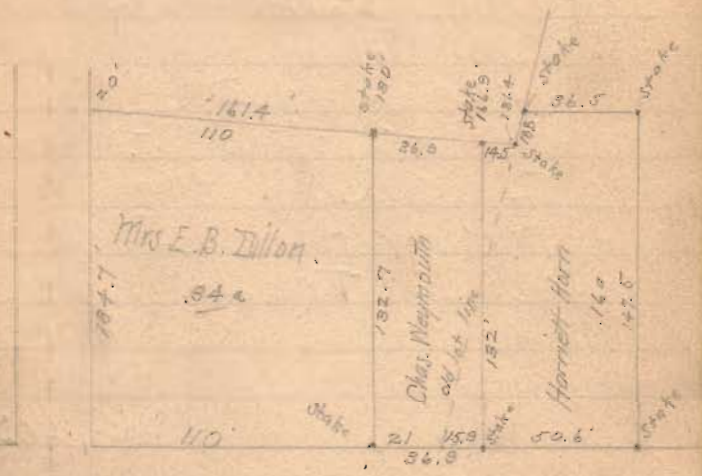 20
161.4
110
Stake
180
26.9
Stake
166.3
181.4
14.5
Stake
18.8
Stake
36.5
Stake
Mrs E. B. Dillon
.34 a
134.7
132.7
Chas. Weymouth
old lot line
132'
Harriett Horn
.16 a
147.5
Stake
110'
21
15.9
36.9
Stake
50.6
Stake